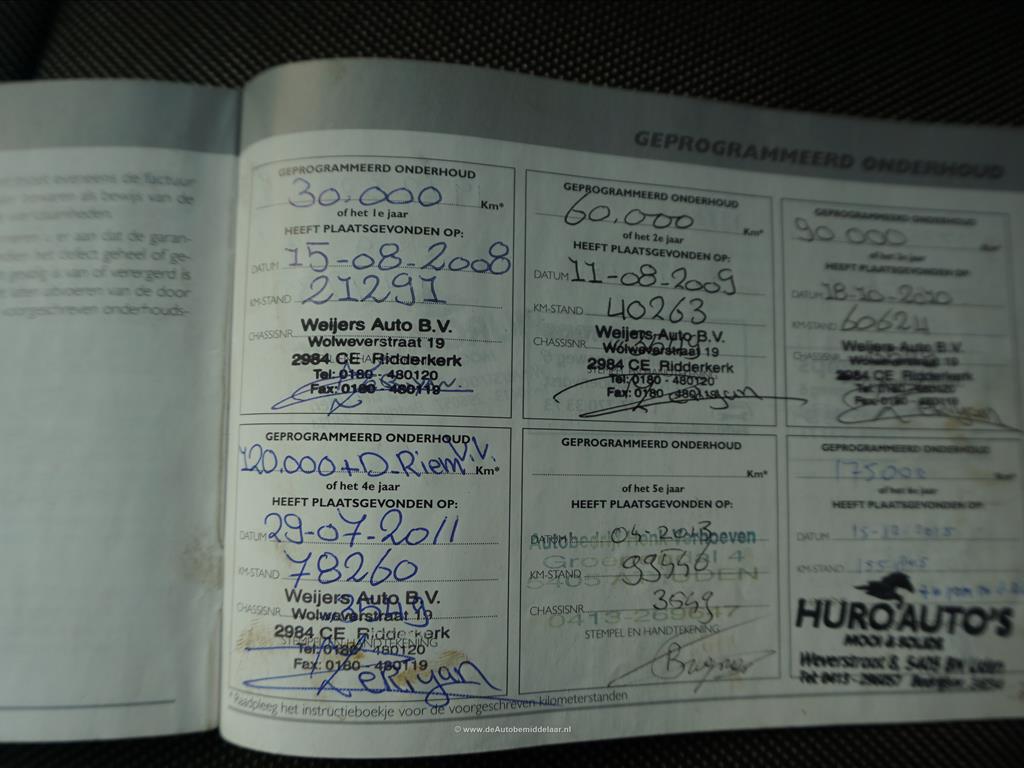 GEPROGRAMMEERD ONDERHOUD
GEPROGRAMMEERD ONDERHOUD
30.000 Km*
of het 1e jaar
HEEFT PLAATSGEVONDEN OP:
DATUM 15-08-2008
KM-STAND 21291
CHASSISNR.
Weijers Auto B.V.
Wolweverstraat 19
2984 CE Ridderkerk
Tel: 0180 - 480120
Fax: 0180 - 480119
GEPROGRAMMEERD ONDERHOUD
60.000 Km*
of het 2e jaar
HEEFT PLAATSGEVONDEN OP:
DATUM 11-08-2009
KM-STAND 40263
CHASSISNR.
Weijers Auto B.V.
Wolweverstraat 19
2984 CE Ridderkerk
Tel: 0180 - 480120
Fax: 0180 - 480119
GEPROGRAMMEERD ONDERHOUD
90.000 Km*
of het 3e jaar
HEEFT PLAATSGEVONDEN OP:
DATUM 18-10-2010
KM-STAND 60624
CHASSISNR.
Weijers Auto B.V.
Wolweverstraat 19
2984 CE Ridderkerk
Tel: 0180 - 480120
Fax: 0180 - 480119
GEPROGRAMMEERD ONDERHOUD
120.000 + D-Riem V.V. Km*
of het 4e jaar
HEEFT PLAATSGEVONDEN OP:
DATUM 29-07-2011
KM-STAND 78260
CHASSISNR. 3549
Weijers Auto B.V.
Wolweverstraat 19
2984 CE Ridderkerk
STEMPEL EN HANDTEKENING
Tel: 0180 - 480120
Fax: 0180 - 480119
GEPROGRAMMEERD ONDERHOUD
Km*
of het 5e jaar
HEEFT PLAATSGEVONDEN OP:
DATUM 04-2013
KM-STAND 93556
CHASSISNR. 3549
STEMPEL EN HANDTEKENING
GEPROGRAMMEERD ONDERHOUD
175000 Km*
of het 6e jaar
HEEFT PLAATSGEVONDEN OP:
DATUM 15-12-2015
KM-STAND
HURO AUTO'S
MOOI & SOLIDE
Weverstraat 8, 5405 BN Uden
* Raadpleeg het instructieboekje voor de voorgeschreven kilometerstanden
© www.deAutobemiddelaar.nl